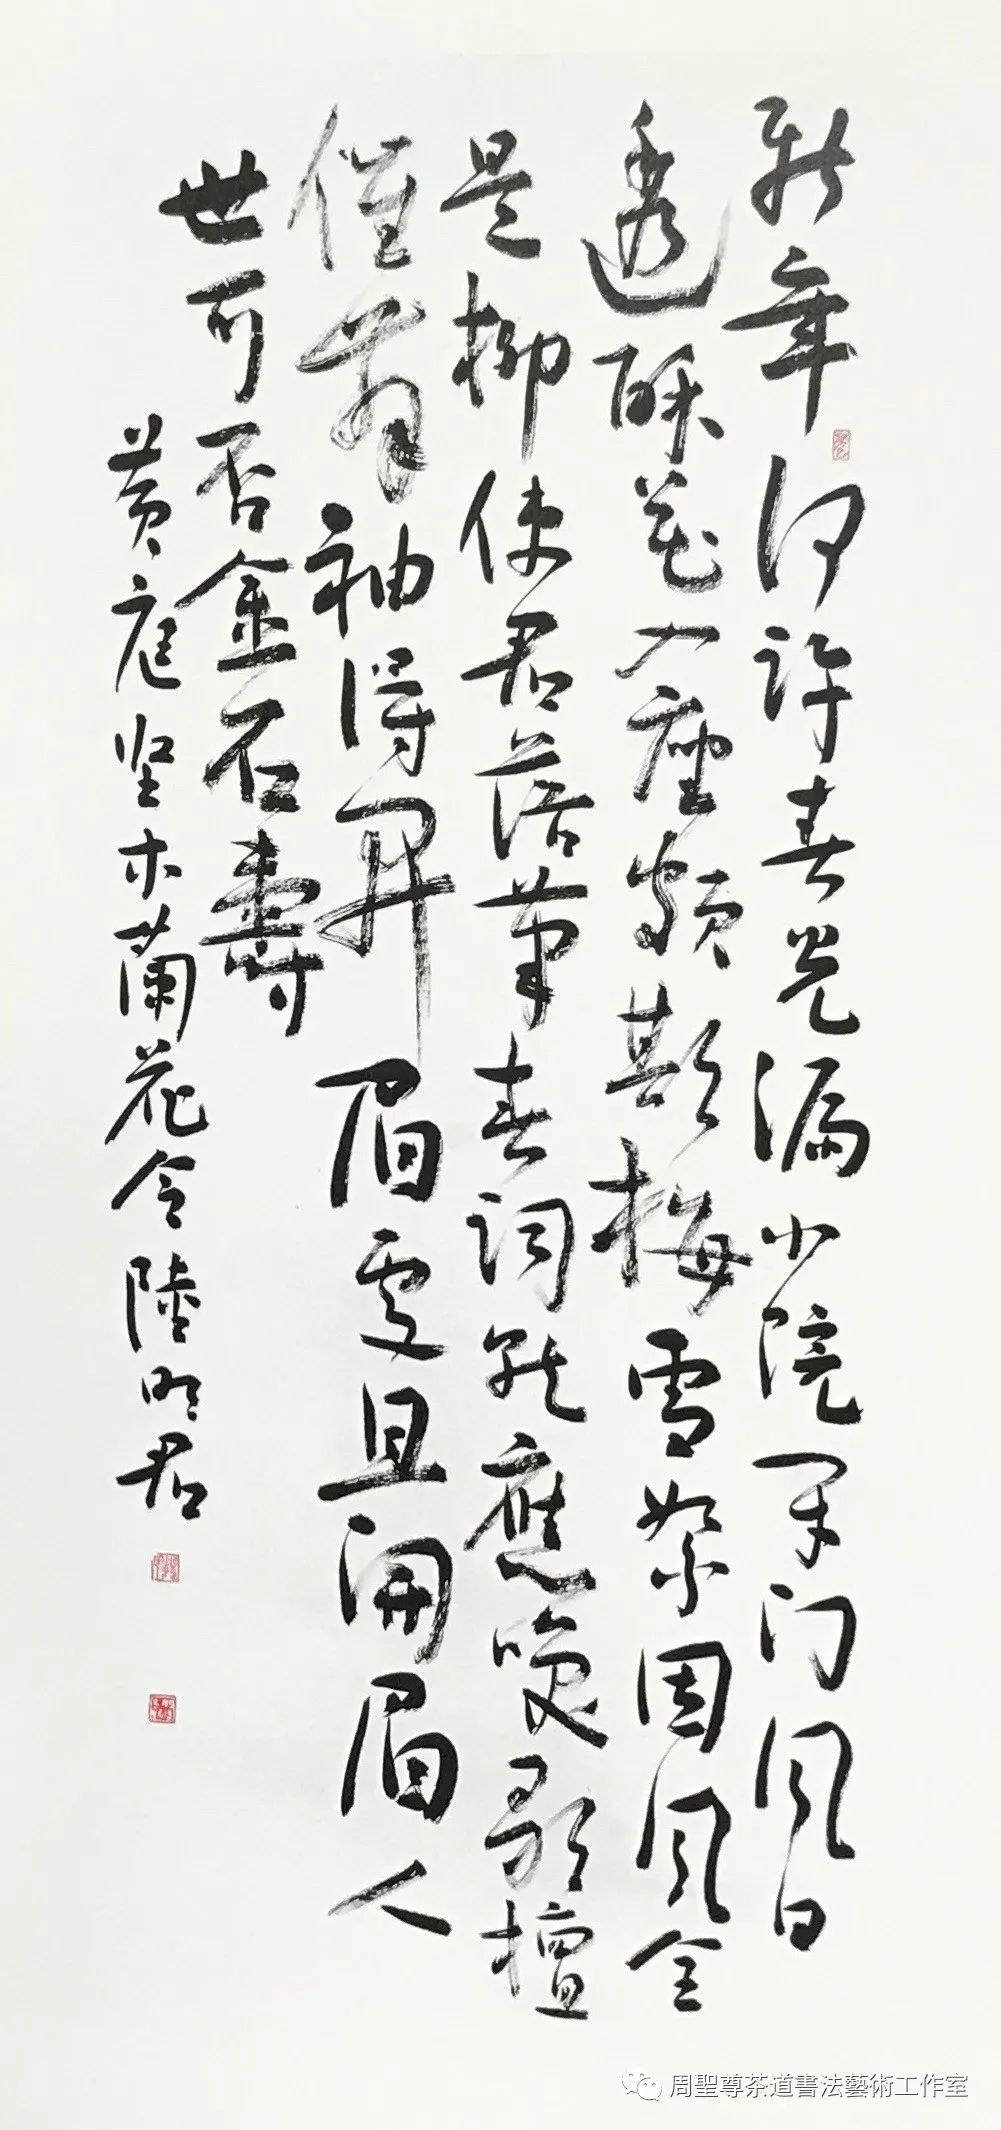 新年何许春光漏小院闭门风日
透酥花入座颇欺梅雪絮因风全
是柳使君落笔春词就應唤歌檀
催舞袖得開眉处且開眉人
世可否金石壽
黄庭坚木蘭花令陸明君
周聖尊茶道書法藝術工作室